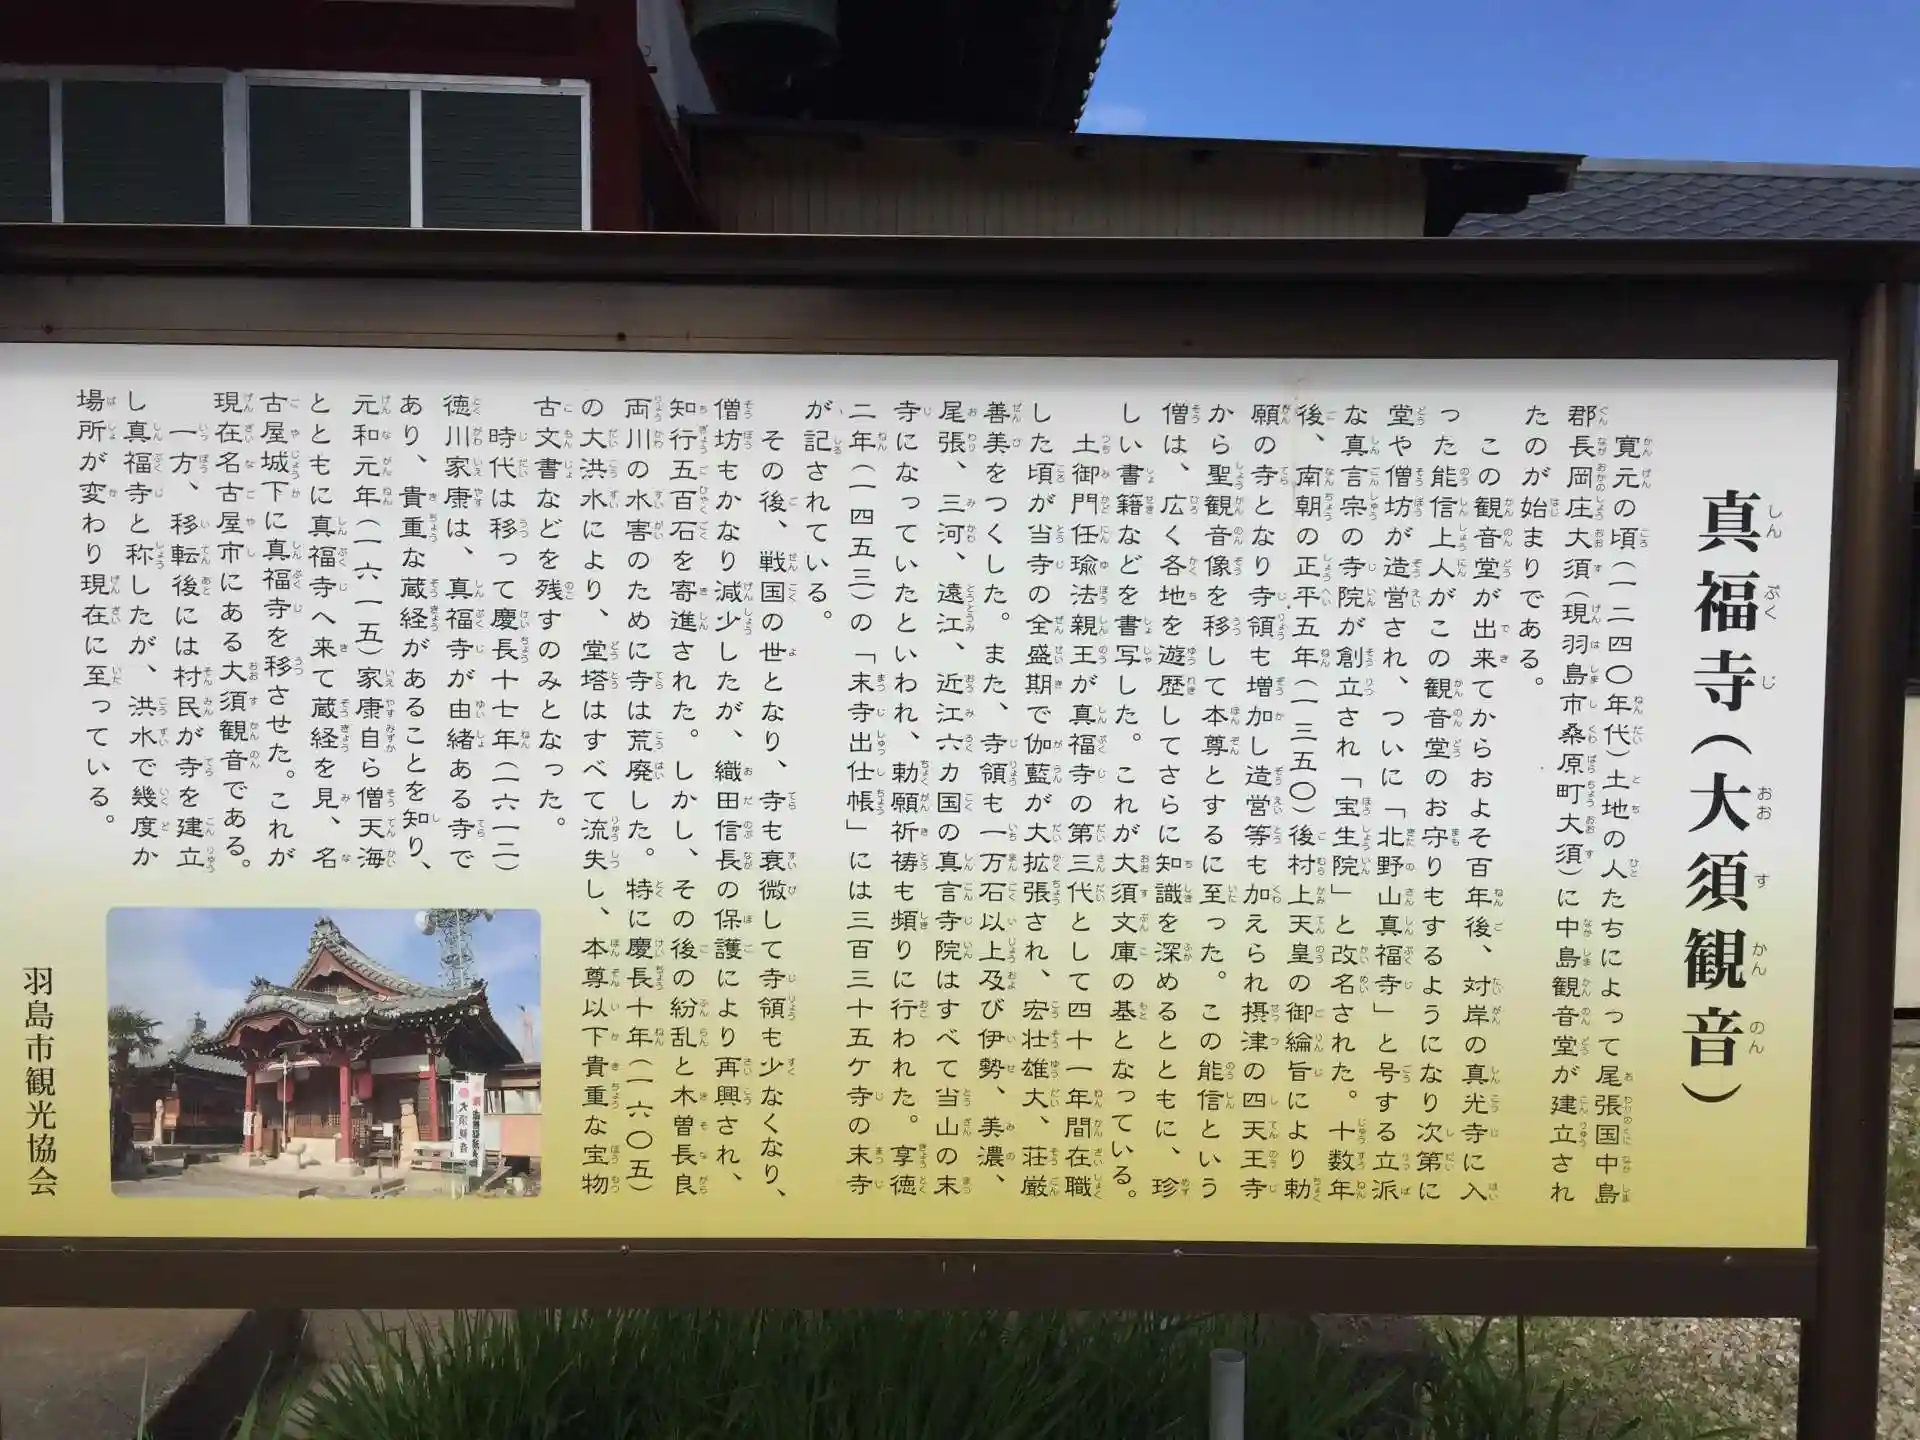 真福寺（大須観音）
寛元の頃（一二四〇年代）土地の人たちによって尾張国中島
郡長岡庄大須（現羽島市桑原町大須）に中島観音堂が建立され
たのが始まりである。
この観音堂が出来てからおよそ百年後、対岸の真光寺に入
った能信上人がこの観音堂のお守りもするようになり次第に
堂や僧坊が造営され、ついに「北野山真福寺」と号する立派
な真言宗の寺院が創立され「宝生院」と改名された。十数年
後、南朝の正平五年（一三五〇）後村上天皇の御綸旨により勅
願の寺となり寺領も増加し造営等も加えられ摂津の四天王寺
から聖観音像を移して本尊とするに至った。この能信という
僧は、広く各地を遊歴してさらに知識を深めるとともに、珍
しい書籍などを書写した。これが大須文庫の基となっている。
土御門任瑜法親王が真福寺の第三代として四十一年間在職
した頃が当寺の全盛期で伽藍が大拡張され、宏壮雄大、荘厳
善美をつくした。また、寺領も一万石以上及び伊勢、美濃、
尾張、三河、遠江、近江六カ国の真言寺院はすべて当山の末
寺になっていたといわれ、勅願祈祷も頻りに行われた。享徳
二年（一四五三）の「末寺出仕帳」には三百三十五ケ寺の末寺
が記されている。
その後、戦国の世となり、寺も衰微して寺領も少なくなり、
僧坊もかなり減少したが、織田信長の保護により再興され、
知行五百石を寄進された。しかし、その後の紛乱と木曽長良
両川の水害のために寺は荒廃した。特に慶長十年（一六〇五）
の大洪水により、堂塔はすべて流失し、本尊以下貴重な宝物
古文書などを残すのみとなった。
時代は移って慶長十七年（一六一二）
徳川家康は、真福寺が由緒ある寺で
あり、貴重な蔵経があることを知り、
元和元年（一六一五）家康自ら僧天海
とともに真福寺へ来て蔵経を見、名
古屋城下に真福寺を移させた。これが
現在名古屋市にある大須観音である。
一方、移転後には村民が寺を建立
し真福寺と称したが、洪水で幾度か
場所が変わり現在に至っている。
羽島市観光協会